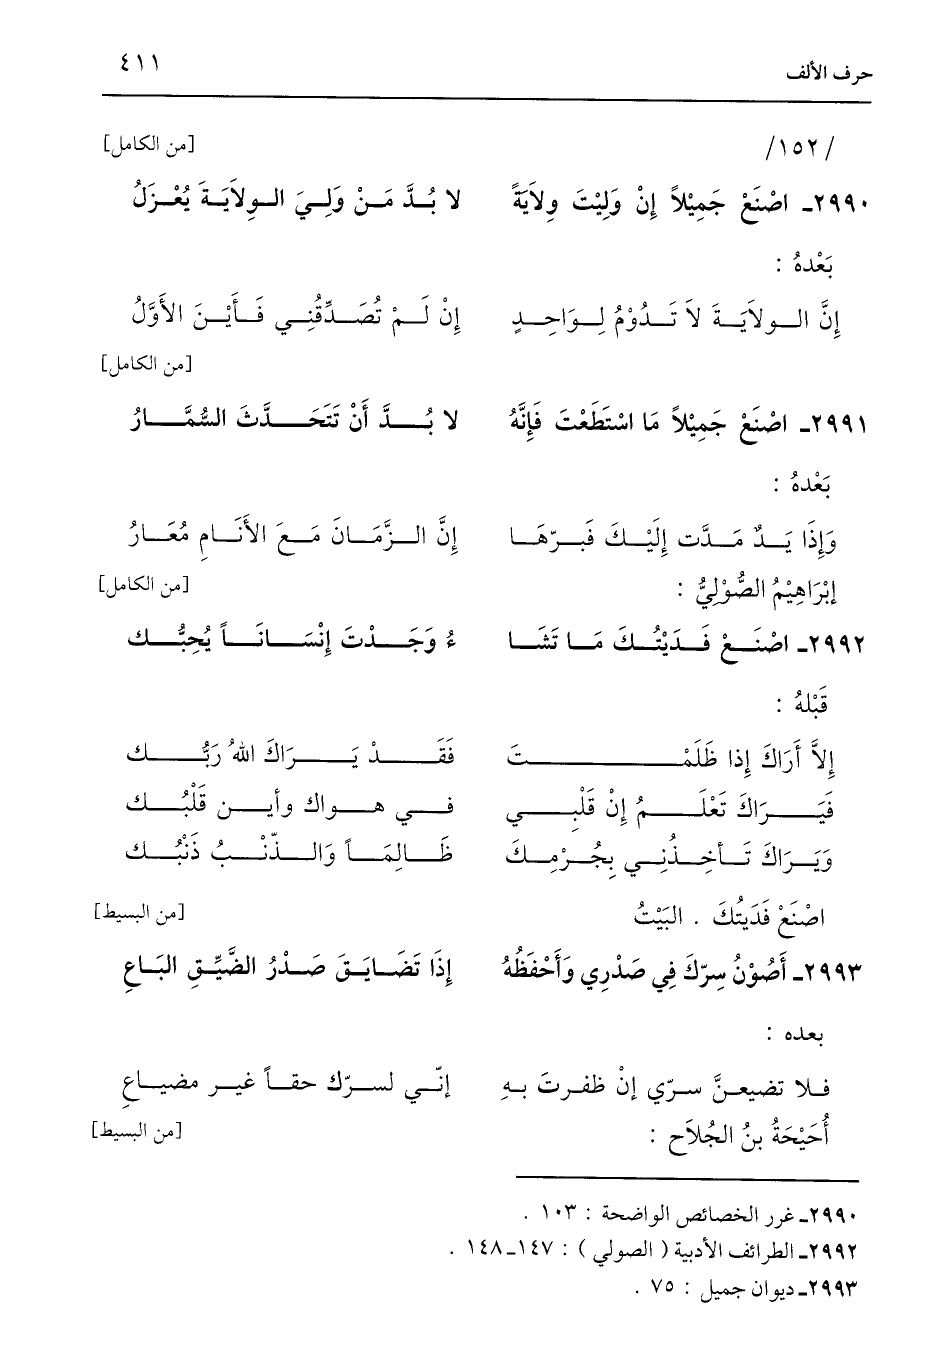 حرف الألف ٤١١
/١٥٢/ [من الكامل]
٢٩٩٠ـ اصْنَعْ جَمِيْلاً إِنْ وَلِيْتَ وِلاَيَةً لا بُدَّ مَنْ وَلِيَ الوِلاَيَةَ يُعْزَلُ
بَعْدهُ :
إِنَّ الولاَيَةَ لاَ تَدُوْمُ لِوَاحِدٍ إِنْ لَمْ تُصَدِّقُنِي فَأَيْنَ الأَوَّلُ
[من الكامل]
٢٩٩١ـ اصْنَعْ جَمِيْلاً مَا اسْتَطَعْتَ فَإِنَّهُ لا بُدَّ أَنْ تَتَحَدَّثَ السُّمَّارُ
بَعْدهُ :
وَإِذَا يَدٌ مَدَّت إِلَيْكَ فَبرّهَا إِنَّ الزَّمَانَ مَعَ الأَنَامِ مُعَارُ
إبْرَاهِيْمُ الصُّوْلِيُّ : [من الكامل]
٢٩٩٢ـ اصْنَعْ فَدَيْتُكَ مَا تَشَا ءُ وَجَدْتَ إِنْسَانَاً يُحِبُّك
قَبْلهُ :
إِلاَّ أَرَاكَ إِذا ظَلَمْتَ فَقَدْ يَرَاكَ اللهُ رَبُّك
فَيَرَاكَ تَعْلَمُ إِنْ قَلْبِي في هواك وأين قَلْبُك
وَيَرَاكَ تَأخِذُنِي بِجُرْمِكَ ظَالِمَاً وَالذّنْبُ ذَنْبُك
اصْنَعْ فَدَيتُكَ . البَيْتُ [من البسيط]
٢٩٩٣ـ أَصُوْنُ سِرّكَ فِي صَدْرِي وَأَحْفَظُهُ إِذَا تَضَايَقَ صَدْرُ الضَّيِّقِ البَاعِ
بعده :
فلا تضيعنَّ سرّي إنْ ظفرتَ بهِ إنّي لسرّك حقاً غير مضياعِ
أُحَيْحَةُ بنُ الجُلاَح : [من البسيط]
٢٩٩٠ـ غرر الخصائص الواضحة : ١٠٣ .
٢٩٩٢ـ الطرائف الأدبية ( الصولي ) : ١٤٧ـ١٤٨ .
٢٩٩٣ـ ديوان جميل : ٧٥ .